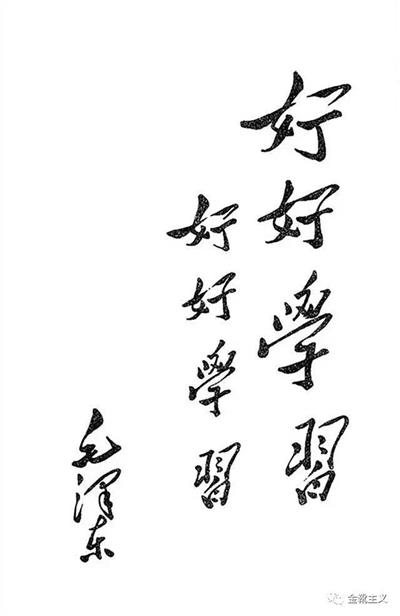 好好學習
好好學習
毛澤东
金靴主义